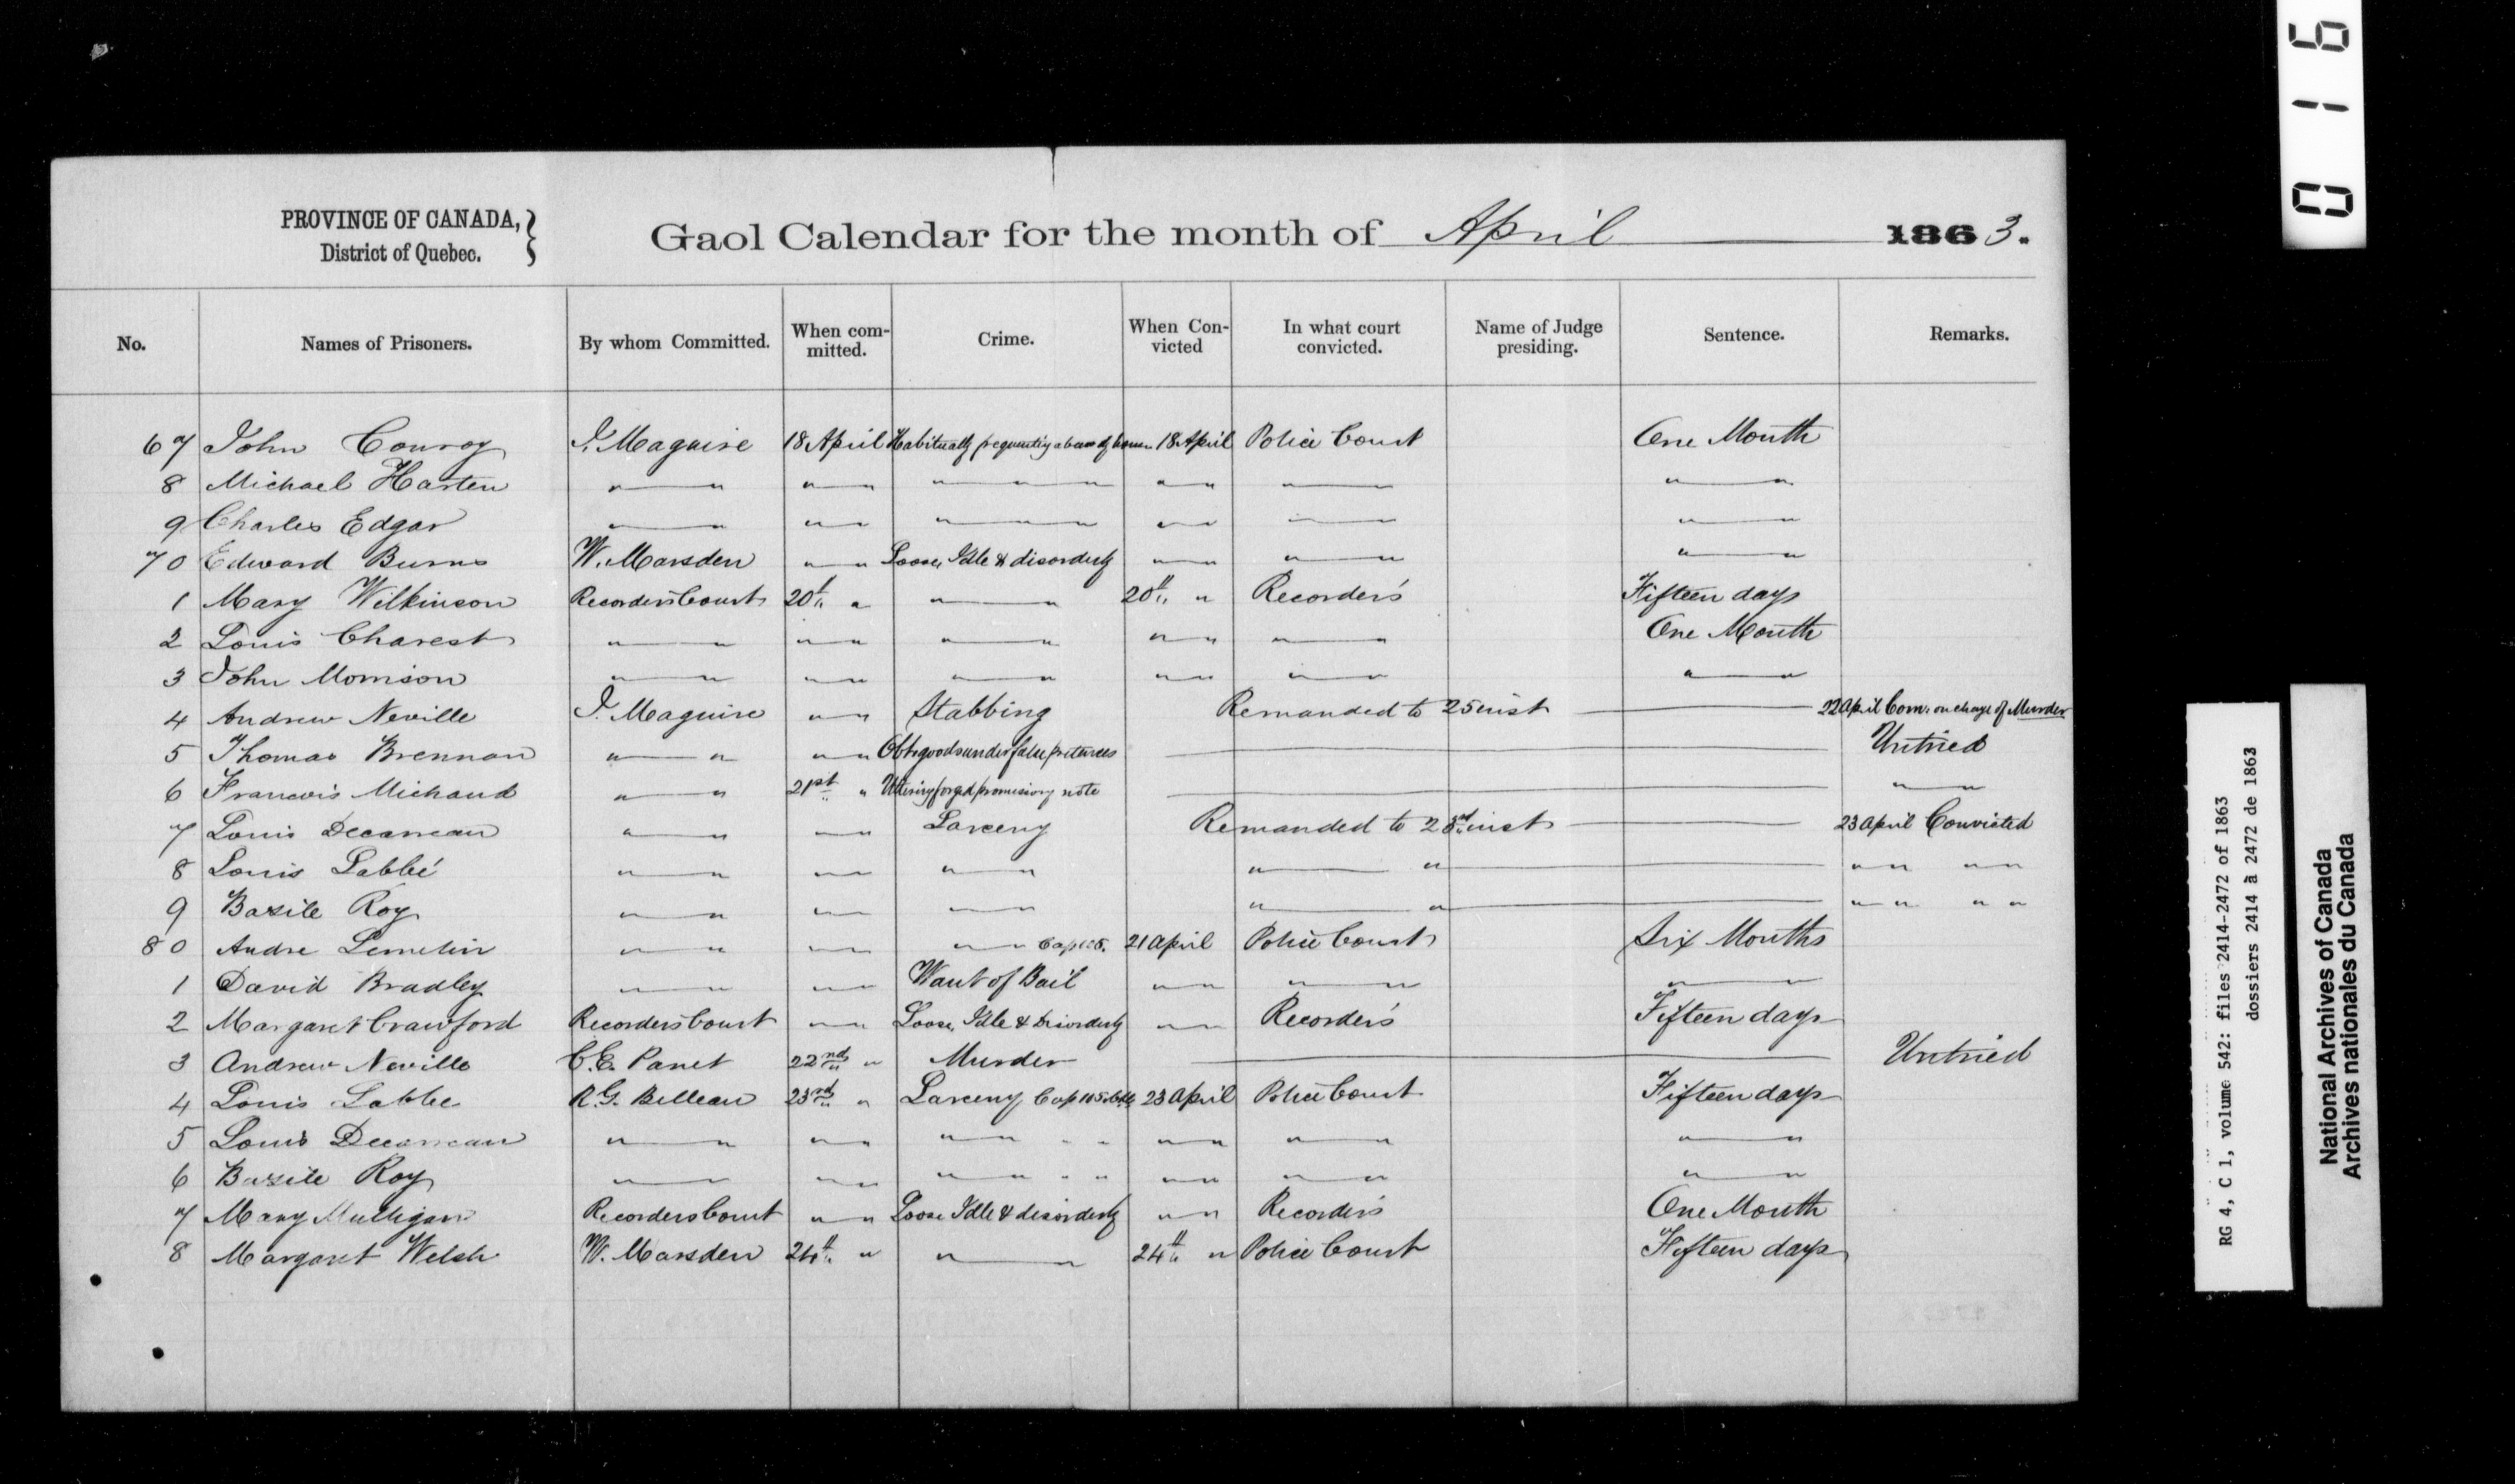 PROVINCE OF CANADA,
District of Quebec.
Gaol Calendar for the month of April 1863.
No. Names of Prisoners. By whom Committed. When com-mitted. Crime. When Con-victed In what court convicted. Name of Judge presiding. Sentence. Remarks.
67 John Conroy J. Maguire 18 April Habitually frequenting a house of 18 April Police Court One Month
8 Michael Harten " " " " " " " " " " " " "
9 Charles Edgar " " " " " " " " " " " " "
70 Edward Burns W. Marsden " " Loose, Idle & disorderly " " " " " "
1 Mary Wilkinson Recorders Court 20th " " " 20th " Recorder's Fifteen days
2 Louis Charest " " " " " " " " " " One Month
3 John Morrison " " " " " " " " " " " "
4 Andrew Neville J. Maguire " " Stabbing Remanded to 25 inst 22 April Com. on charge of Murder
5 Thomas Brennan " " " " Obtg goods under false pretences Untried
6 Francois Michaud " " 21st " Uttering forged promisory note " "
7 Louis " " " " Larceny Remanded to 23rd inst 23 April Convicted
8 Louis Labbé " " " " " " " " " " " "
9 Bazile Roy " " " " " " " " " " " "
80 Andre Lemelin " " " " " " Cap 105. 21 April Police Court Six Months
1 David Bradley " " " " Want of Bail " " " " " "
2 Margaret Crawford Recorders Court " " Loose, Idle & Disorderly " " Recorder's Fifteen days
3 Andrew Neville C. E. Panet 22nd " Murder Untried
4 Louis Labbee R. G. Belleau 23rd " Larceny Cap 105 23 April Police Court Fifteen days
5 Louis " " " " " " " " " " " " " "
6 Bazile Roy " " " " " " " " " " " " " "
7 Mary Mulligan Recorders Court " " Loose Idle & disorderly " " Recorder's One Month
8 Margaret Welsh W. Marsden 24th " " " 24th " Police Court Fifteen days
0 1 6
RG 4, C 1, volume 542: files 2414-2472 of 1863
dossiers 2414 à 2472 de 1863
National Archives of Canada
Archives nationales du Canada